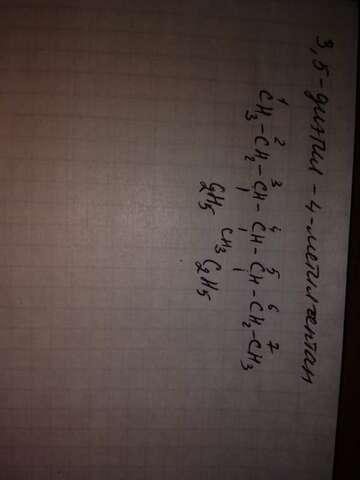 3,5-диэтил-4-метилгептан
1 2 3 4 5 6 7
CH3-CH2-CH-CH-CH-CH2-CH3
C2H5 CH3 C2H5